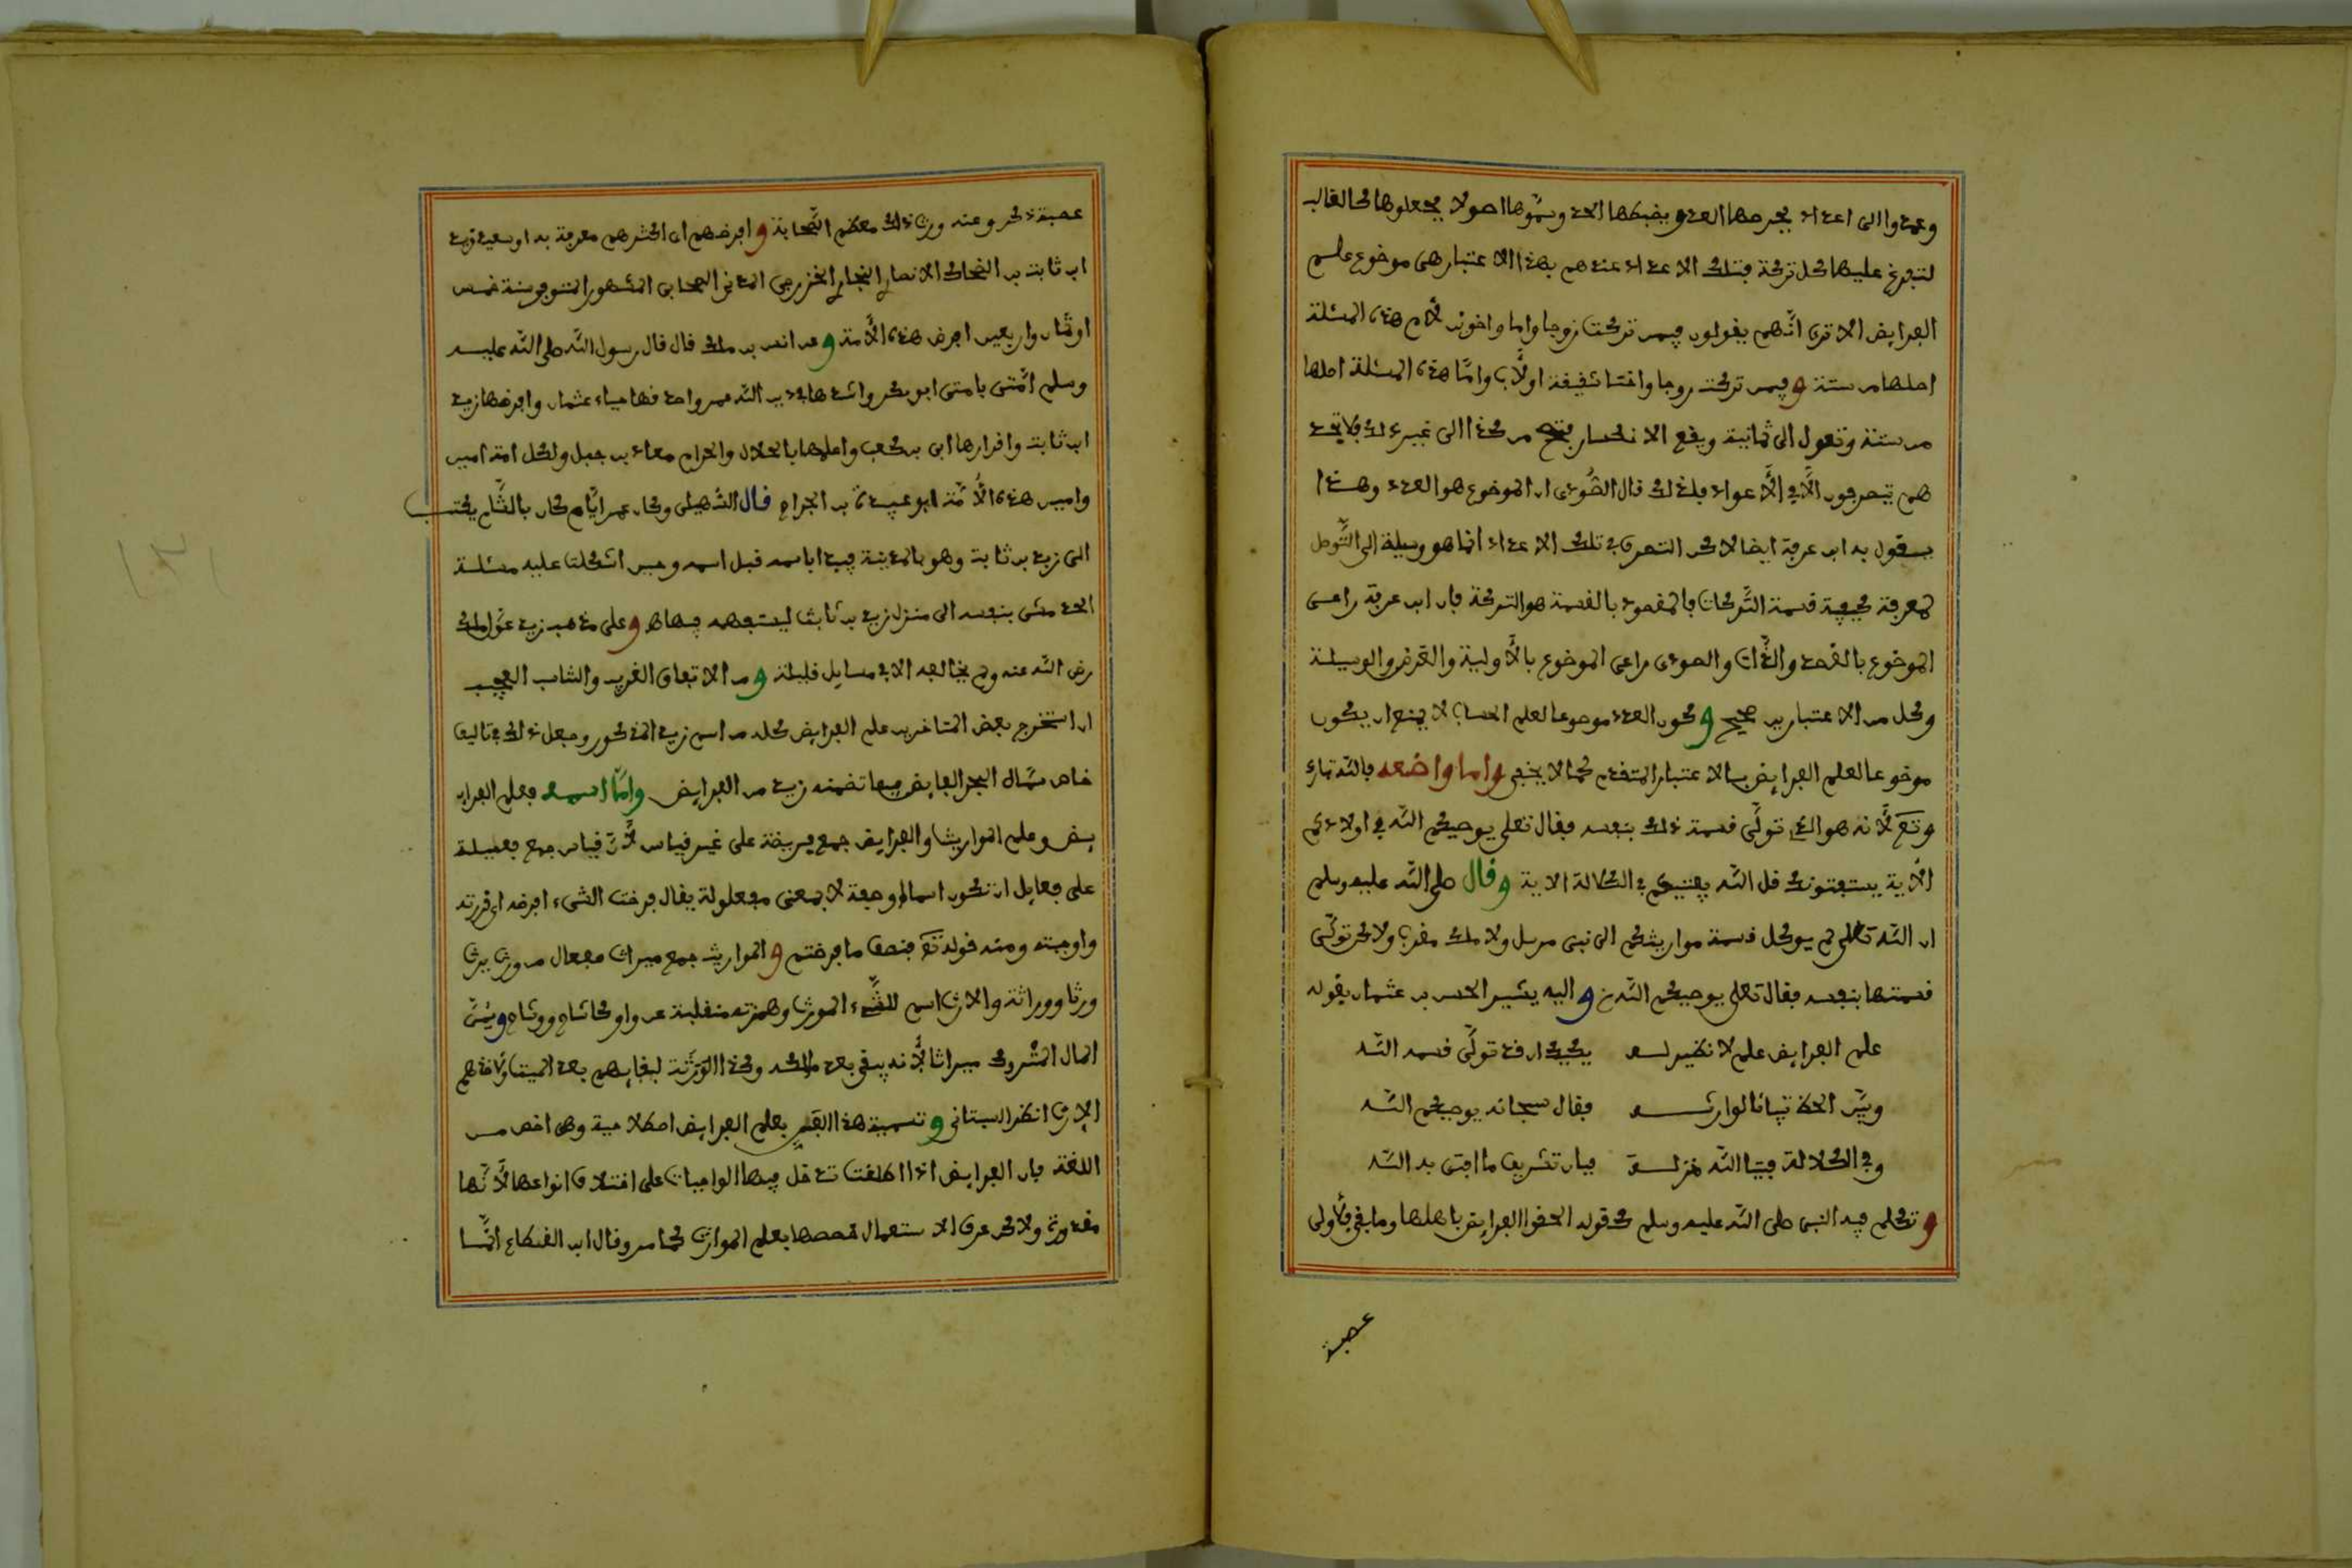 وعمدوا الى اعداد يجمعها العدد ويضبطها الحد وسموها اصولا يجعلونها كالقالب
لتبرغ عليها كل تركة فتلك الاعداد عندهم بهذا الاعتبار هي موضوع علم
الفرايض الا ترى انهم يقولون فيمن تركت زوجا واما واخوين لام هذه المسئلة
اصلها من ستة وفيمن تركت زوجا واختا شقيقة او لاب واما هذه المسئلة اصلها
من ستة وتعول الى ثمانية ويقع الانكسار من كذا الى غير ذلك فلا تجد
هم يتصرفون الا في الاعداد فلذلك قال الصودي ان الموضوع هو العدد وهذا
يقول به ابن عرفة ايضا لاكن التصرف في تلك الاعداد انما هو وسيلة الى التوصل
لمعرفة كيفية قسمة التركات فالمقصود بالقسمة هو التركة فان ابن عرفة راعى
الموضوع بالقصد والذات والصودى راعى الموضوع بالاولية والقرض والوسيلة
وكل من الاعتبارين صحيح وكون العدد موضوعا لعلم الحساب لا يمنع ان يكون
موضوعا لعلم الفرايض بالاعتبار المتقدم كما لا يخفى واما واضعه فالله تبارك
وتع لانه هو الذي تولى قسمة ذلك بنفسه فقال تعلى يوصيكم الله في اولادكم
الاية يستفتونك قل الله يفتيكم في الكلالة الاية وقال صلى الله عليه وسلم
ان الله تعلى لم يوكل قسمة مواريثكم الى نبي مرسل ولا ملك مقرب ولاكن تولى
قسمتها بنفسه فقال تعلى يوصيكم الله واليه يشير الحسن بن عثمان بقوله
علم الفرايض علم لا نظير له يكفيك ان قد تولى قسمه الله
وبين الحظ تبيانا لوارثه فقال سبحانه يوصيكم الله
وفي الكلالة فتيا الله منزلة فبان تشريف ما افتى به الله
وتكلم فيه النبي صلى الله عليه وسلم كقوله الحقوا الفرايض باهلها وما بقي فلاولى
عصبة
عصبة ذكر وعنه ورث ذلك معظم الصحابة وافرضهم اى اكثرهم معرفة به اوسعيد زيد
ابن ثابت بن الضحاك الانصاري النجاري الخزرجي المدني الصحابي المشهور المتوفى سنة خمس
او ثمان واربعين افرض هذه الامة وعن انس بن ملك قال قال رسول الله صلى الله عليه
وسلم امتى بامتى ابو بكر واشدها في دين الله عمر واصدقها حياء عثمان وافرضها زيد
ابن ثابت واقراها ابي بن كعب واعلمها بالحلال والحرام معاذ بن جبل ولكل امة امين
وامين هذه الامة ابو عبيدة بن الجراح قال السهيلي وكان عمر ايام كان بالشام يكتب
الى زيد بن ثابت وهو بالمدينة فيبدا باسمه قبل اسمه وحين اشكلت عليه مسئلة
الجد مشى بنفسه الى منزل زيد بن ثابت ليستفهمه فيها وعلى مذهب زيد عول ملك
رضى الله عنه ولم يخالفه الا في مسايل قليلة ومن الاتفاق الغريب والشان العجيب
ان استخرج بعض المتاخرين علم الفرايض كله من اسم زيد المذكور وجعل ذلك في تاليف
خاص سماه البحر الفايض فيما تضمنه زيد من الفرايض واما اسمه فعلم الفرا
يض وعلم المواريث والفرايض جمع فريضة على غير قياس لان قياس جمع فعيلة
على فعايل ان تكون اسما او صفة لا بمعنى مفعولة يقال فرضت الشيء افرضه اى قررته
واوجبته ومنه قوله تع فنصف ما فرضتم والمواريث جمع ميراث مفعال من ورث يرث
ورثا ووراثة والارث اسم للشيء الموروث وهمزته منقلبة عن واو كاشاح ووشاح
المال المتروك ميراثا لانه يبقى بعد مالكه وكذا الورثة لبقايهم بعد الميت
الارث انظر البستاني وتسمية هذا الفن بعلم الفرايض اصطلاحية وهي اخص من
اللغة فان الفرايض اذا اطلقت تدخل فيها الواجبات على اختلاف انواعها لانها
مقدرة ولاكن عرف الاستعمال خصصها بعلم المواريث كما مر وقال ابن القطاع انما